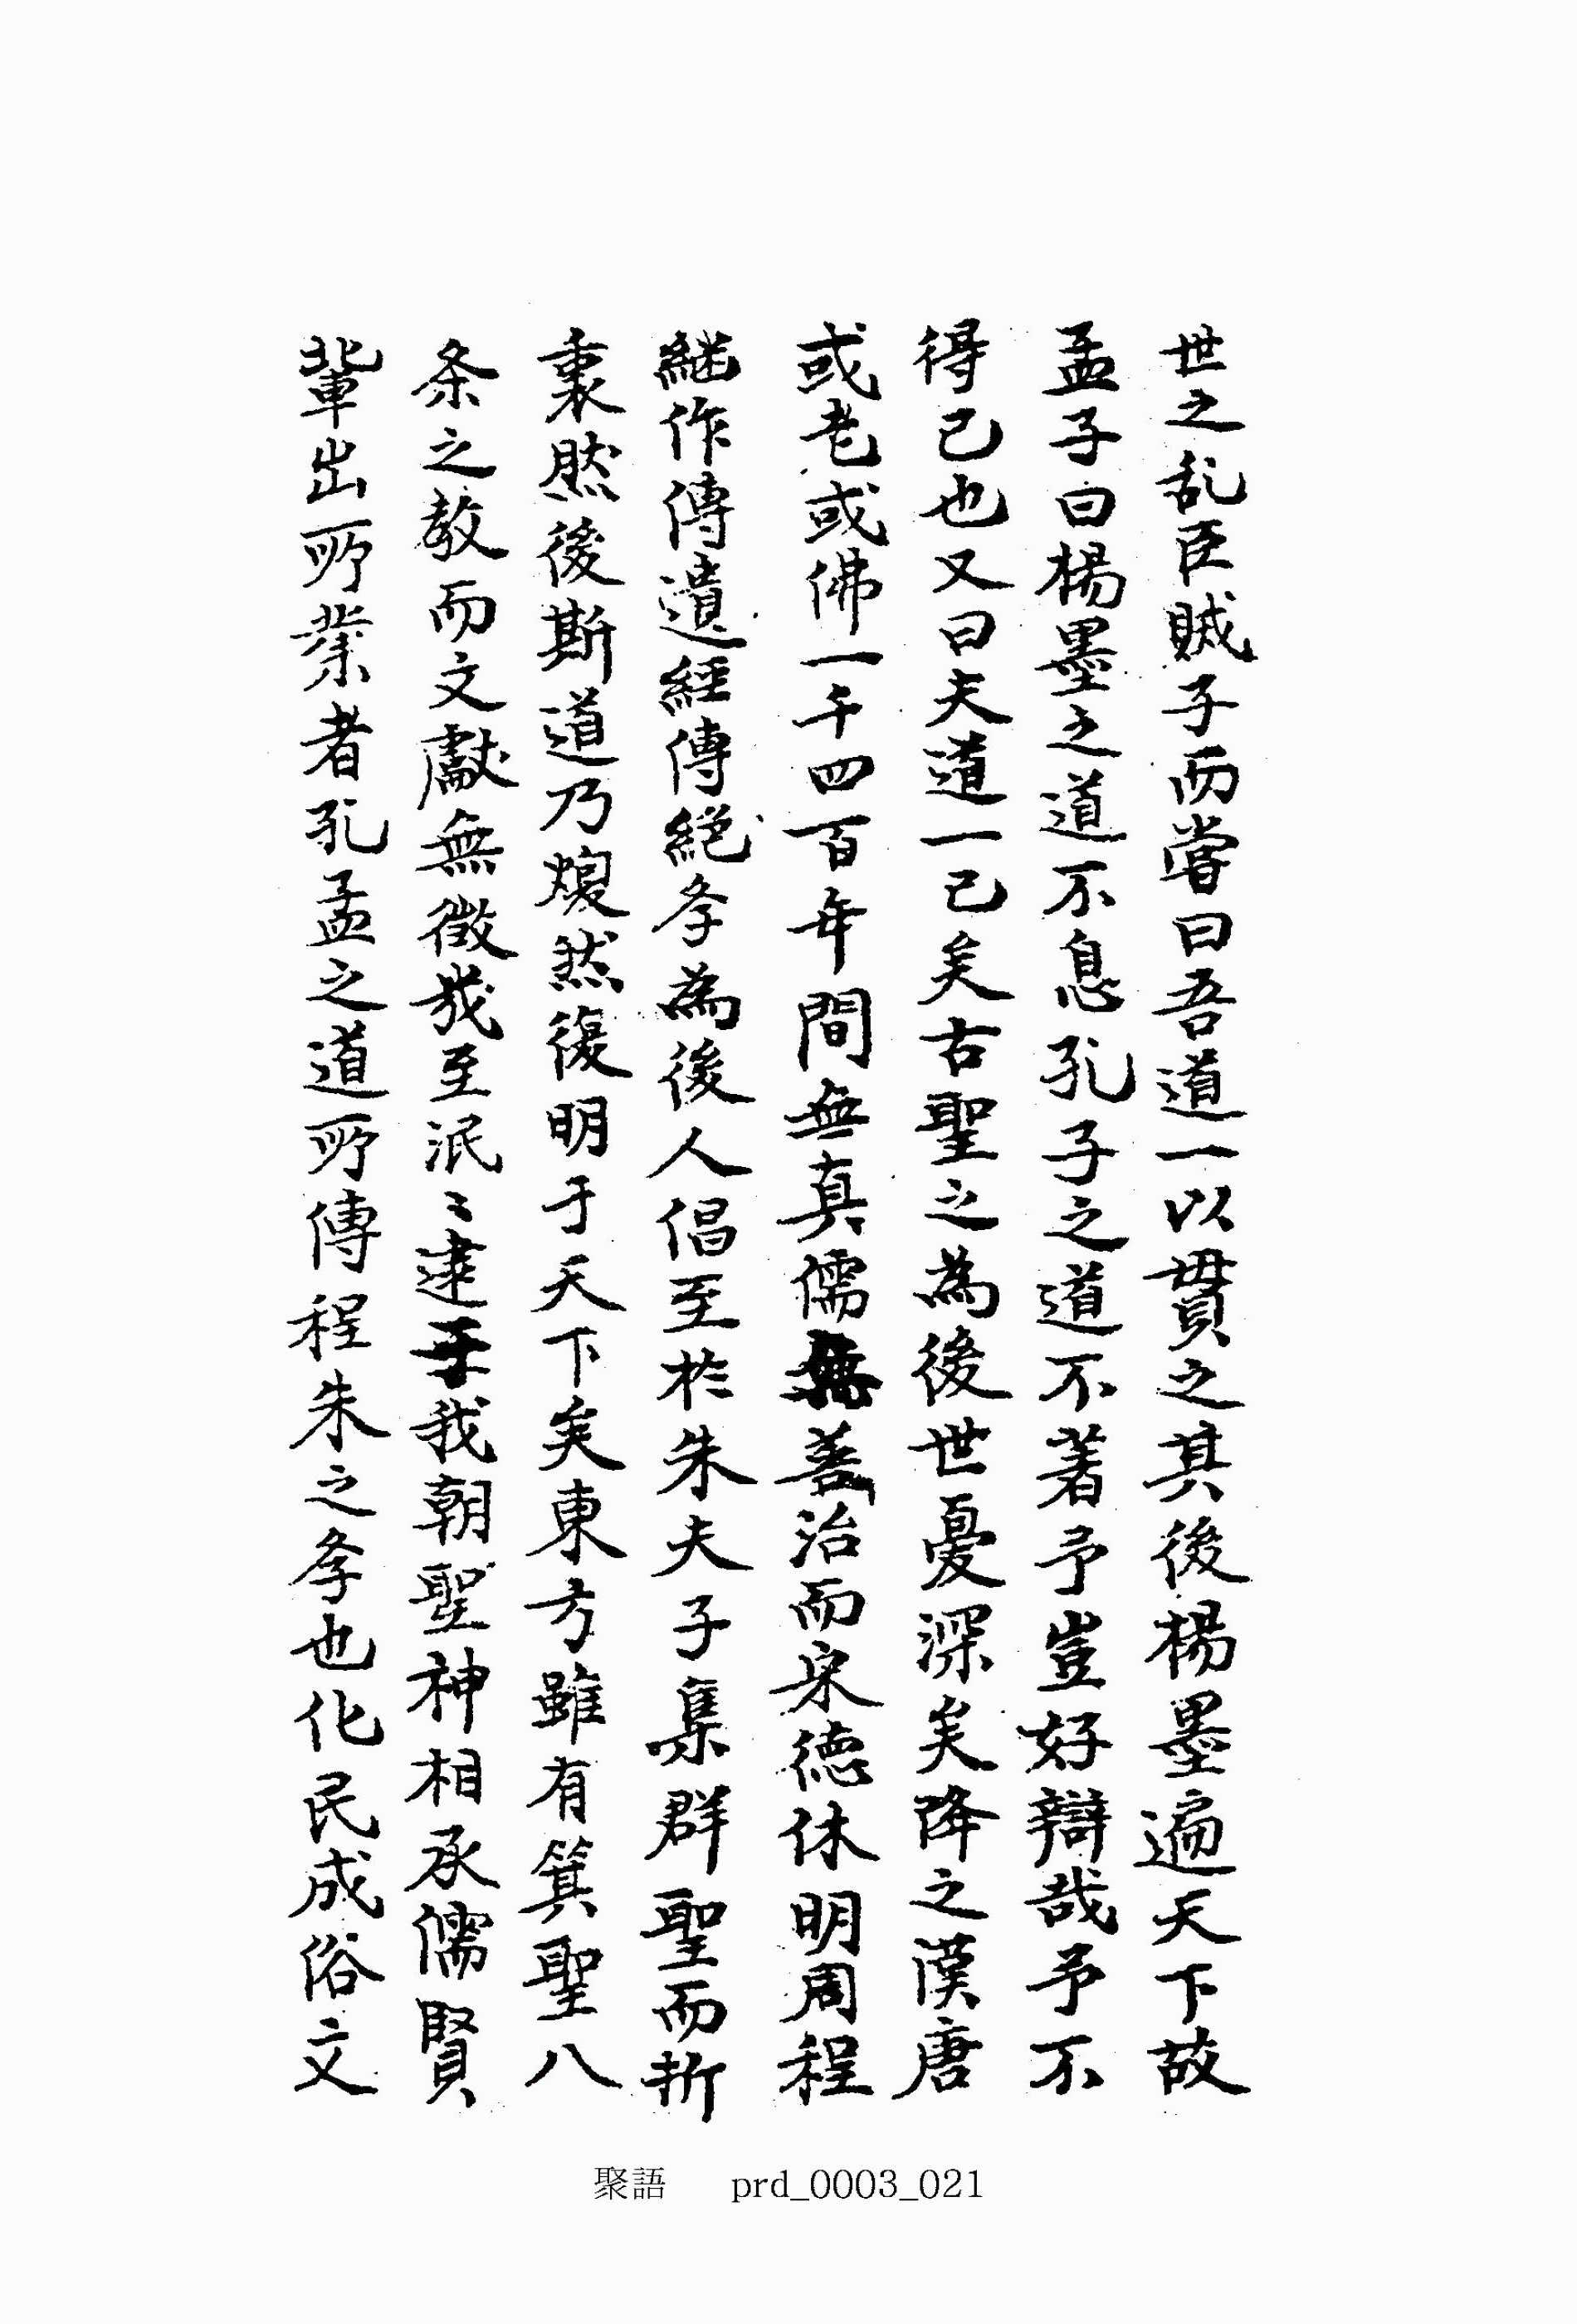 世之乱臣賊子而嘗曰吾道一以貫之其後楊墨遍天下故
孟子曰楊墨之道不息孔子之道不著予豈好辯哉予不
得已也又曰夫道一已矣古聖之為後世憂深矣降之漢唐
或老或佛一千四百年間無真儒無善治而宋德休明周程
継作傳遺經傳絕孝為後人倡至於朱夫子集群聖而折
衷然後斯道乃煥然復明于天下矣東方雖有箕聖八
条之教而文獻無徵幾至泯〻逮于我朝聖神相承儒賢
輩出所業者孔孟之道所傳程朱之孝也化民成俗文
聚語 prd_0003_021